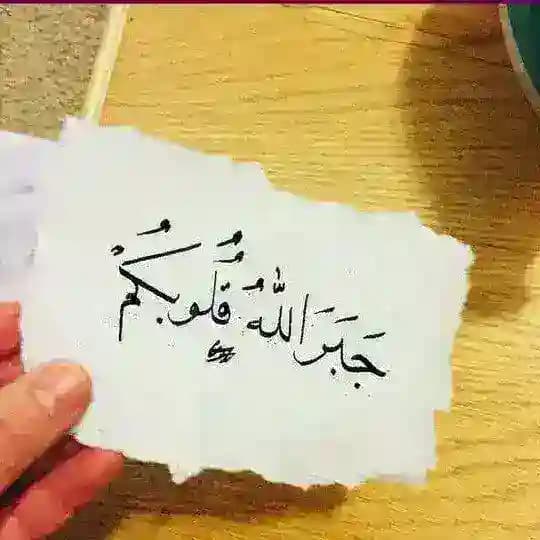 جَبَرَ اللهُ قُلُوبُكُمْ